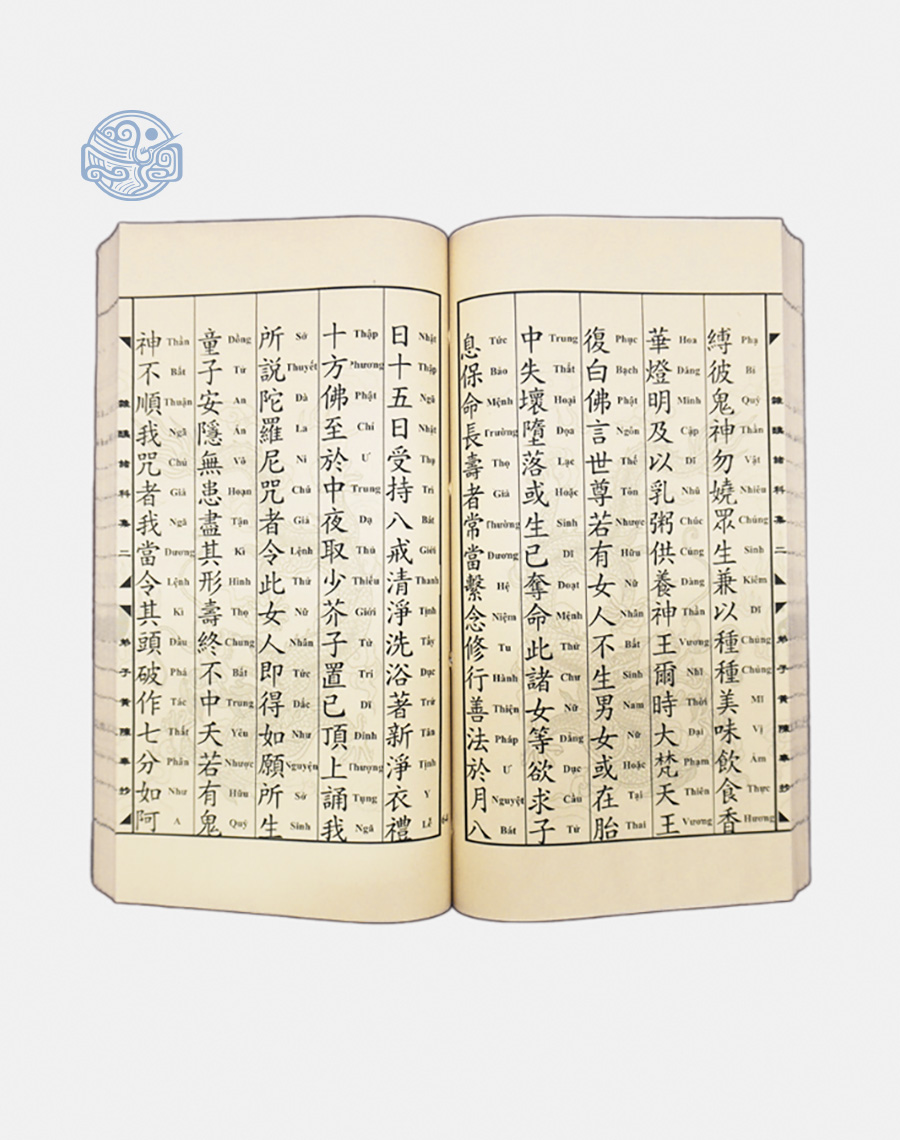 雜諸科集二
弟子黃陳奉抄
縛彼鬼神勿嬈眾生兼以種種美味飲食香
Phạ Bỉ Quỷ Thần Vật Nhiêu Chúng Sinh Kiêm Dĩ Chủng Chủng Mĩ Vị Ẩm Thực Hương
華燈明及以乳粥供養神王爾時大梵天王
Hoa Đăng Minh Cập Dĩ Nhũ Chúc Cúng Dàng Thần Vương Nhĩ Thời Đại Phạm Thiên Vương
復白佛言世尊若有女人不生男女或在胎
Phục Bạch Phật Ngôn Thế Tôn Nhược Hữu Nữ Nhân Bất Sinh Nam Nữ Hoặc Tại Thai
中失壞墮落或生已奪命此諸女等欲求子
Trung Thất Hoại Đọa Lạc Hoặc Sinh Dĩ Đoạt Mệnh Thử Chư Nữ Đẳng Dục Cầu Tử
息保命長壽者常當繫念修行善法於月八
Tức Bảo Mệnh Trường Thọ Giả Thường Đương Hệ Niệm Tu Hành Thiện Pháp Ư Nguyệt Bát
日十五日受持八戒清淨洗浴著新淨衣禮
Nhật Thập Ngũ Nhật Thụ Trì Bát Giới Thanh Tịnh Tẩy Dục Trứ Tân Tịnh Y Lễ
十方佛至於中夜取少芥子置已頂上誦我
Thập Phương Phật Chí Ư Trung Dạ Thủ Thiểu Giới Tử Trí Dĩ Đính Thượng Tụng Ngã
所說陀羅尼咒者令此女人即得如願所生
Sở Thuyết Đà La Ni Chú Giả Lệnh Thử Nữ Nhân Tức Đắc Như Nguyện Sở Sinh
童子安隱無患盡其形壽終不中夭若有鬼
Đồng Tử An Ẩn Vô Hoạn Tận Kì Hình Thọ Chung Bất Trung Yêu Nhược Hữu Quỷ
神不順我咒者我當令其頭破作七分如阿
Thần Bất Thuận Ngã Chú Giả Ngã Đương Lệnh Kì Đầu Phá Tác Thất Phân Như A
雜諸科集二
弟子黃陳奉抄